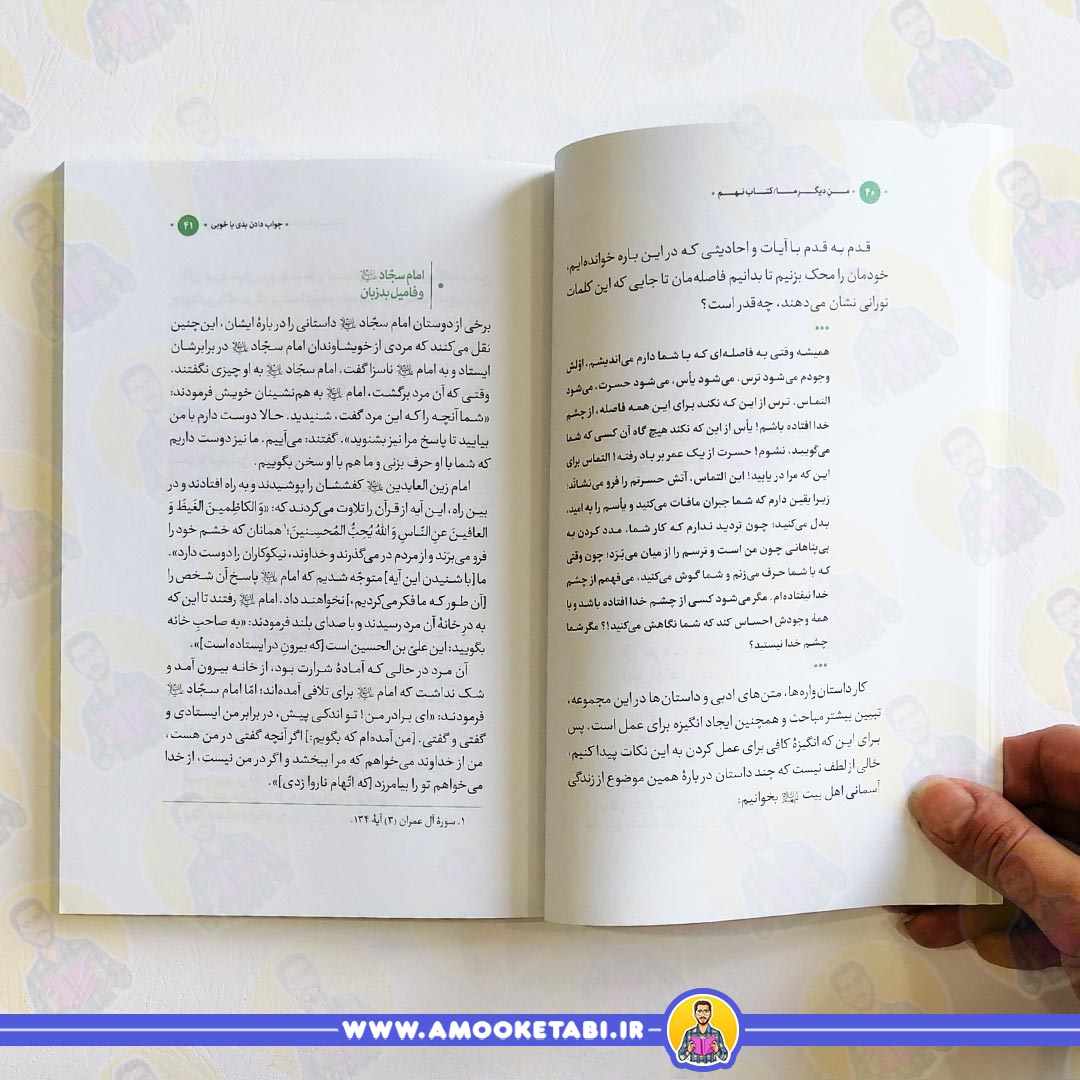 ۴۰ • مـن دیگـر مـا/ کتـاب نهـم •
قدم به قدم با آیات و احادیثی که در این باره خوانده‌ایم،
خودمان را محک بزنیم تا بدانیم فاصله‌مان تا جایی که این کلمات
نورانی نشان می‌دهند، چه‌قدر است؟
•••
همیشه وقتی به فاصله‌ای که با شما دارم می‌اندیشم، اوّلش
وجودم می‌شود ترس، می‌شود یأس، می‌شود حسرت، می‌شود
التماس. ترس از این که نکند برای این همه فاصله، از چشم
خدا افتاده باشم! یأس از این که نکند هیچ گاه آن کسی که شما
می‌گویید، نشوم! حسرت از یک عمر بر باد رفته! التماس برای
این که مرا در یابید! این التماس، آتش حسرتم را فرو می‌نشاند؛
زیرا یقین دارم که شما جبران مافات می‌کنید و یأسم را به امید،
بدل می‌کنید؛ چون تردید ندارم که کار شما، مدد کردن به
بی‌پناهانی چون من است و ترسم را از میان می‌بَرَد؛ چون وقتی
که با شما حرف می‌زنم و شما گوش می‌کنید، می‌فهمم از چشم
خدا نیفتاده‌ام. مگر می‌شود کسی از چشم خدا افتاده باشد و با
همهٔ وجودش احساس کند که شما نگاهش می‌کنید!؟ مگر شما
چشم خدا نیستید؟
•••
کار داستان‌واره‌ها، متن‌های ادبی و داستان ها در این مجموعه،
تبیین بیشتر مباحث و همچنین ایجاد انگیزه برای عمل است. پس
برای این که انگیزهٔ کافی برای عمل کردن به این نکات پیدا کنیم،
خالی از لطف نیست که چند داستان دربارهٔ همین موضوع از زندگی
آسمانی اهل بیت بخوانیم:
• جواب دادن بدی با خوبی • ۴۱
امام سجّاد
و فامیل بدزبان
برخی از دوستان امام سجّاد داستانی را دربارهٔ ایشان، این‌چنین
نقل می‌کنند که مردی از خویشاوندان امام سجّاد در برابرشان
ایستاد و به امام ناسزا گفت. امام سجّاد به او چیزی نگفتند.
وقتی که آن مرد برگشت، امام به هم‌نشینان خویش فرمودند:
«شما آنچه را که این مرد گفت، شنیدید. حالا دوست دارم با من
بیایید تا پاسخ مرا نیز بشنوید». گفتند: می‌آییم. ما نیز دوست داریم
که شما با او حرف بزنی و ما هم با او سخن بگوییم.
امام زین العابدین کفششان را پوشیدند و به راه افتادند و در
بین راه، این آیه از قرآن را تلاوت می‌کردند که: «وَ الکاظِمینَ الغَیظَ وَ
العافینَ عنِ النّاسِ وَ اللهُ یُحِبُّ المُحسِنینَ؛¹ همانان که خشم خود را
فرو می‌برَند و از مردم در می‌گذرند و خداوند، نیکوکاران را دوست دارد».
ما [با شنیدن این آیه] متوجّه شدیم که امام پاسخ آن شخص را
[آن طور که ما فکر می‌کردیم،] نخواهند داد. امام رفتند تا این که
به در خانهٔ آن مرد رسیدند و با صدای بلند فرمودند: «به صاحبِ خانه
بگویید: این علیّ بن الحسین است [که بیرون در ایستاده است]».
آن مرد در حالی که آمادهٔ شرارت بود، از خانه بیرون آمد و
شک نداشت که امام برای تلافی آمده‌اند؛ امّا امام سجّاد
فرمودند: «ای برادر من! تو اندکی پیش، در برابر من ایستادی و
گفتی و گفتی. [من آمده‌ام که بگویم:] اگر آنچه گفتی در من هست،
من از خداوند می‌خواهم که مرا ببخشد و اگر در من نیست، از خدا
می‌خواهم تو را بیامرزد [که اتّهام ناروا زدی]».
۱. سورهٔ آل عمران (۳) آیهٔ ۱۳۴.
WWW.AMOOKETABI.IR